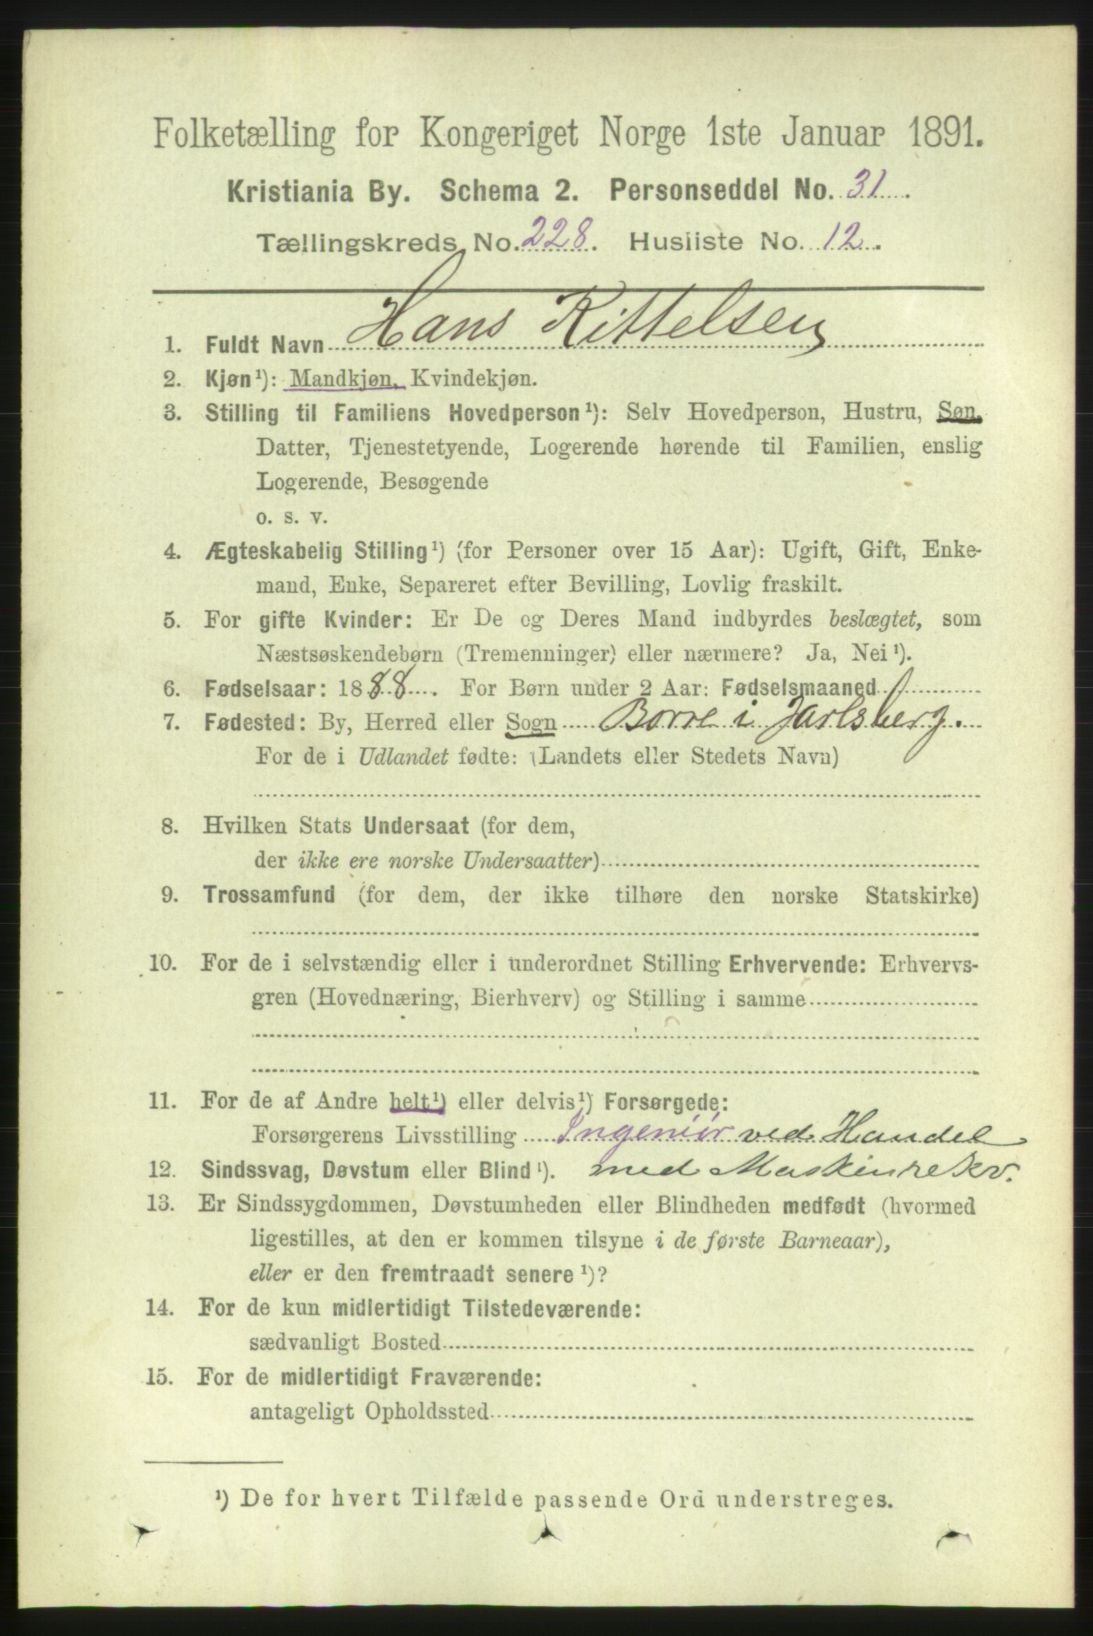 Folketælling for Kongeriget Norge 1ste Januar 1891.
Kristiania By. Schema 2. Personseddel No. 31.
Tællingskreds No. 228. Husliste No. 12.
1. Fuldt Navn Hans Kittelsen
2. Kjøn¹): Mandkjøn, Kvindekjøn.
3. Stilling til Familiens Hovedperson¹): Selv Hovedperson, Hustru, Søn,
Datter, Tjenestetyende, Logerende hørende til Familien, enslig
Logerende, Besøgende
o. s. v.
4. Ægteskabelig Stilling¹) (for Personer over 15 Aar): Ugift, Gift, Enke-
mand, Enke, Separeret efter Bevilling, Lovlig fraskilt.
5. For gifte Kvinder: Er De og Deres Mand indbyrdes beslægtet, som
Næstsøskendebørn (Tremenninger) eller nærmere? Ja, Nei¹).
6. Fødselsaar: 1888. For Børn under 2 Aar: Fødselsmaaned
7. Fødested: By, Herred eller Sogn Borre i Jarlsberg.
For de i Udlandet fødte: (Landets eller Stedets Navn)
8. Hvilken Stats Undersaat (for dem,
der ikke ere norske Undersaatter)
9. Trossamfund (for dem, der ikke tilhøre den norske Statskirke)
10. For de i selvstændig eller i underordnet Stilling Erhvervende: Erhvervs-
gren (Hovednæring, Bierhverv) og Stilling i samme
11. For de af Andre helt¹) eller delvis¹) Forsørgede:
Forsørgerens Livsstilling Ingeniör ved Handel
12. Sindssvag, Døvstum eller Blind¹). med Maskinrekv.
13. Er Sindssygdommen, Døvstumheden eller Blindheden medfødt (hvormed
ligestilles, at den er kommen tilsyne i de første Barneaar),
eller er den fremtraadt senere¹)?
14. For de kun midlertidigt Tilstedeværende:
sædvanligt Bosted
15. For de midlertidigt Fraværende:
antageligt Opholdssted
¹) De for hvert Tilfælde passende Ord understreges.